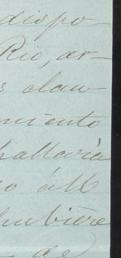 dispo
Rio, ar-
s clau-
miento
hallaria
so áll
hubiere
de